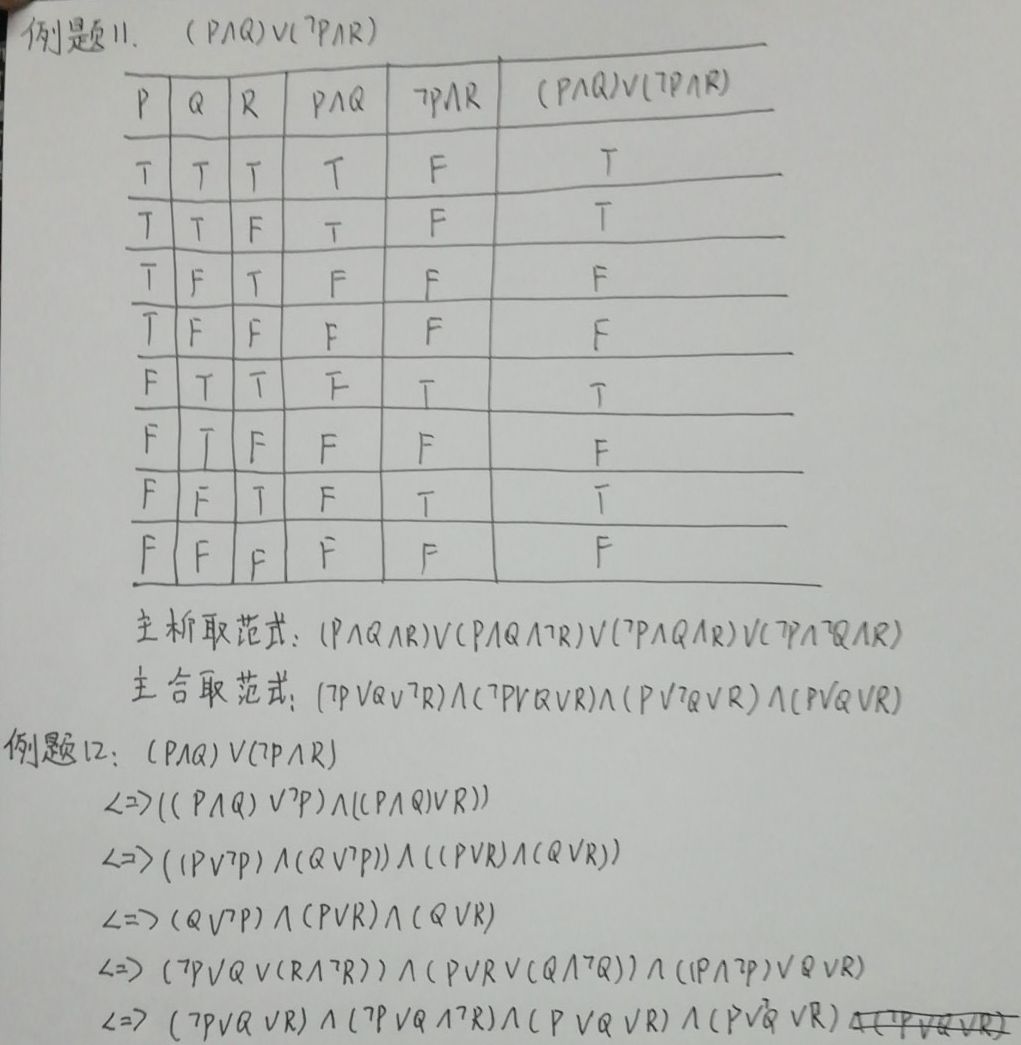 例题11. (P∧Q)∨(¬P∧R)
P Q R P∧Q ¬P∧R (P∧Q)∨(¬P∧R)
T T T T F T
T T F T F T
T F T F F F
T F F F F F
F T T F T T
F T F F F F
F F T F T T
F F F F F F
主析取范式: (P∧Q∧R)∨(P∧Q∧¬R)∨(¬P∧Q∧R)∨(¬P∧¬Q∧R)
主合取范式: (¬P∨Q∨¬R)∧(¬P∨Q∨R)∧(P∨¬Q∨R)∧(P∨Q∨R)
例题12: (P∧Q)∨(¬P∧R)
<=>((P∧Q)∨¬P)∧((P∧Q)∨R))
<=>((P∨¬P)∧(Q∨¬P))∧((P∨R)∧(Q∨R))
<=>(Q∨¬P)∧(P∨R)∧(Q∨R)
<=>(¬P∨Q∨(R∧¬R))∧(P∨R∨(Q∧¬Q))∧((P∧¬P)∨Q∨R)
<=>(¬P∨Q∨R)∧(¬P∨Q∧¬R)∧(P∨Q∨R)∧(P∨¬Q∨R)∧(¬P∨Q∨R)